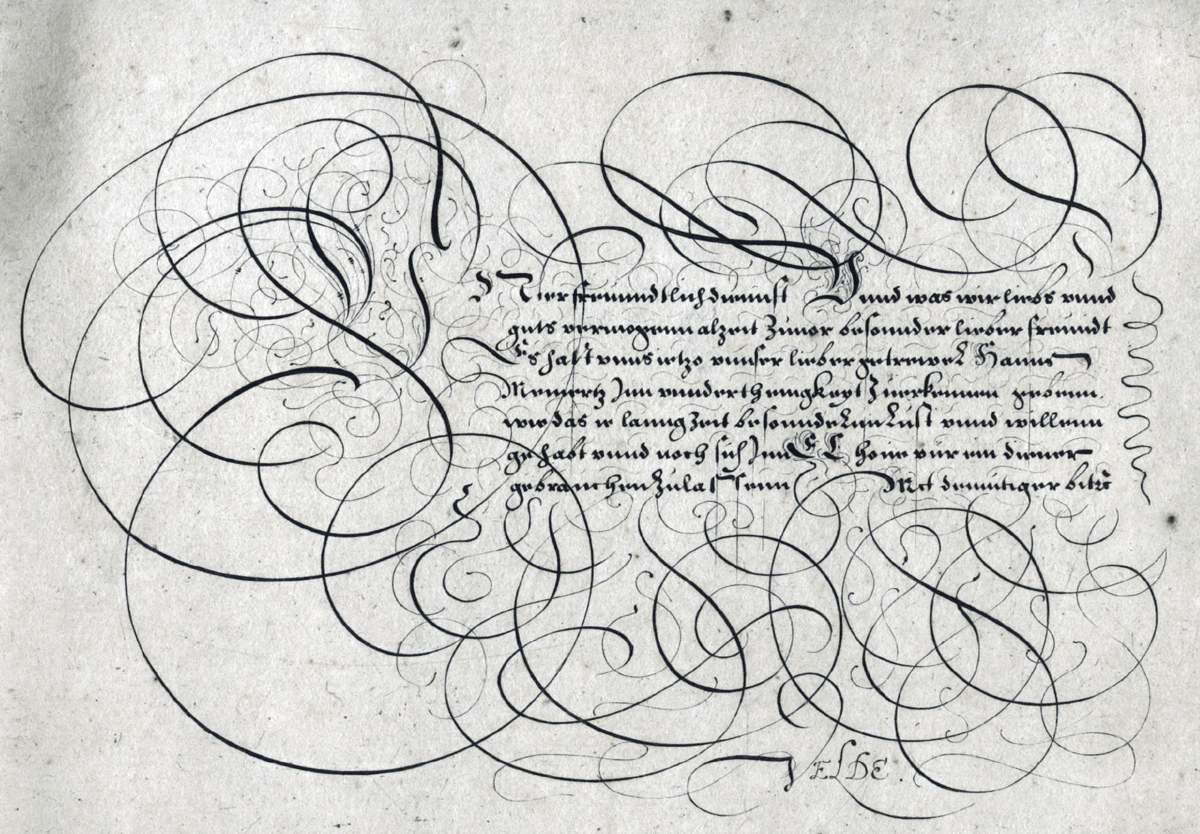 Unser freunndtlich diennst Unnd was wir liebs vnnd
guts vermogenn alzeit Zuuor besonnder lieber freundt
Es hatt vnns ietzo vnnser lieber getrewer Hanns
Meinertz Inn vnnderthenigkeyt Zuerkennen gebenn.
wie das er lanng Zeit besonnderenn Lust vnnd willenn
gehabt vnnd noch sich Inn E L hoiue vür ein diener
gebrauchen Zulassenn Mit demütiger bitt
VELDE.